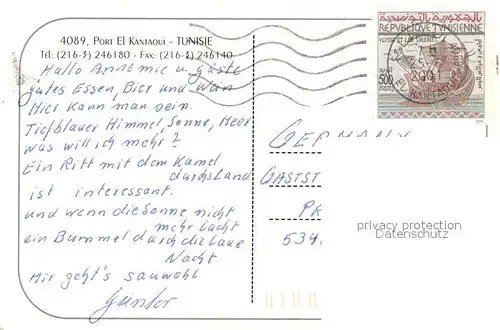 4089, PORT EL KANTAOUI - TUNISIE
Tél: (216-3) 246180 - Fax: (216-3) 246140
Hallo Annemie u. Gäste
gutes Essen, Bier und Wein
Hier kann man sein.
Tiefblauer Himmel, Sonne, Meer
was will ich mehr?
Ein Ritt mit dem Kamel
durchs Land
ist interessant.
und wenn die Sonne nicht
mehr lacht
ein Bummel durch die laue
Nacht
Mir geht's sauwohl
Günter
REPUBLIQUE TUNISIENNE
ULYSSE ET LES SIRENES
500
GERMANY
GASTST
PK
534.
privacy protection
Datenschutz